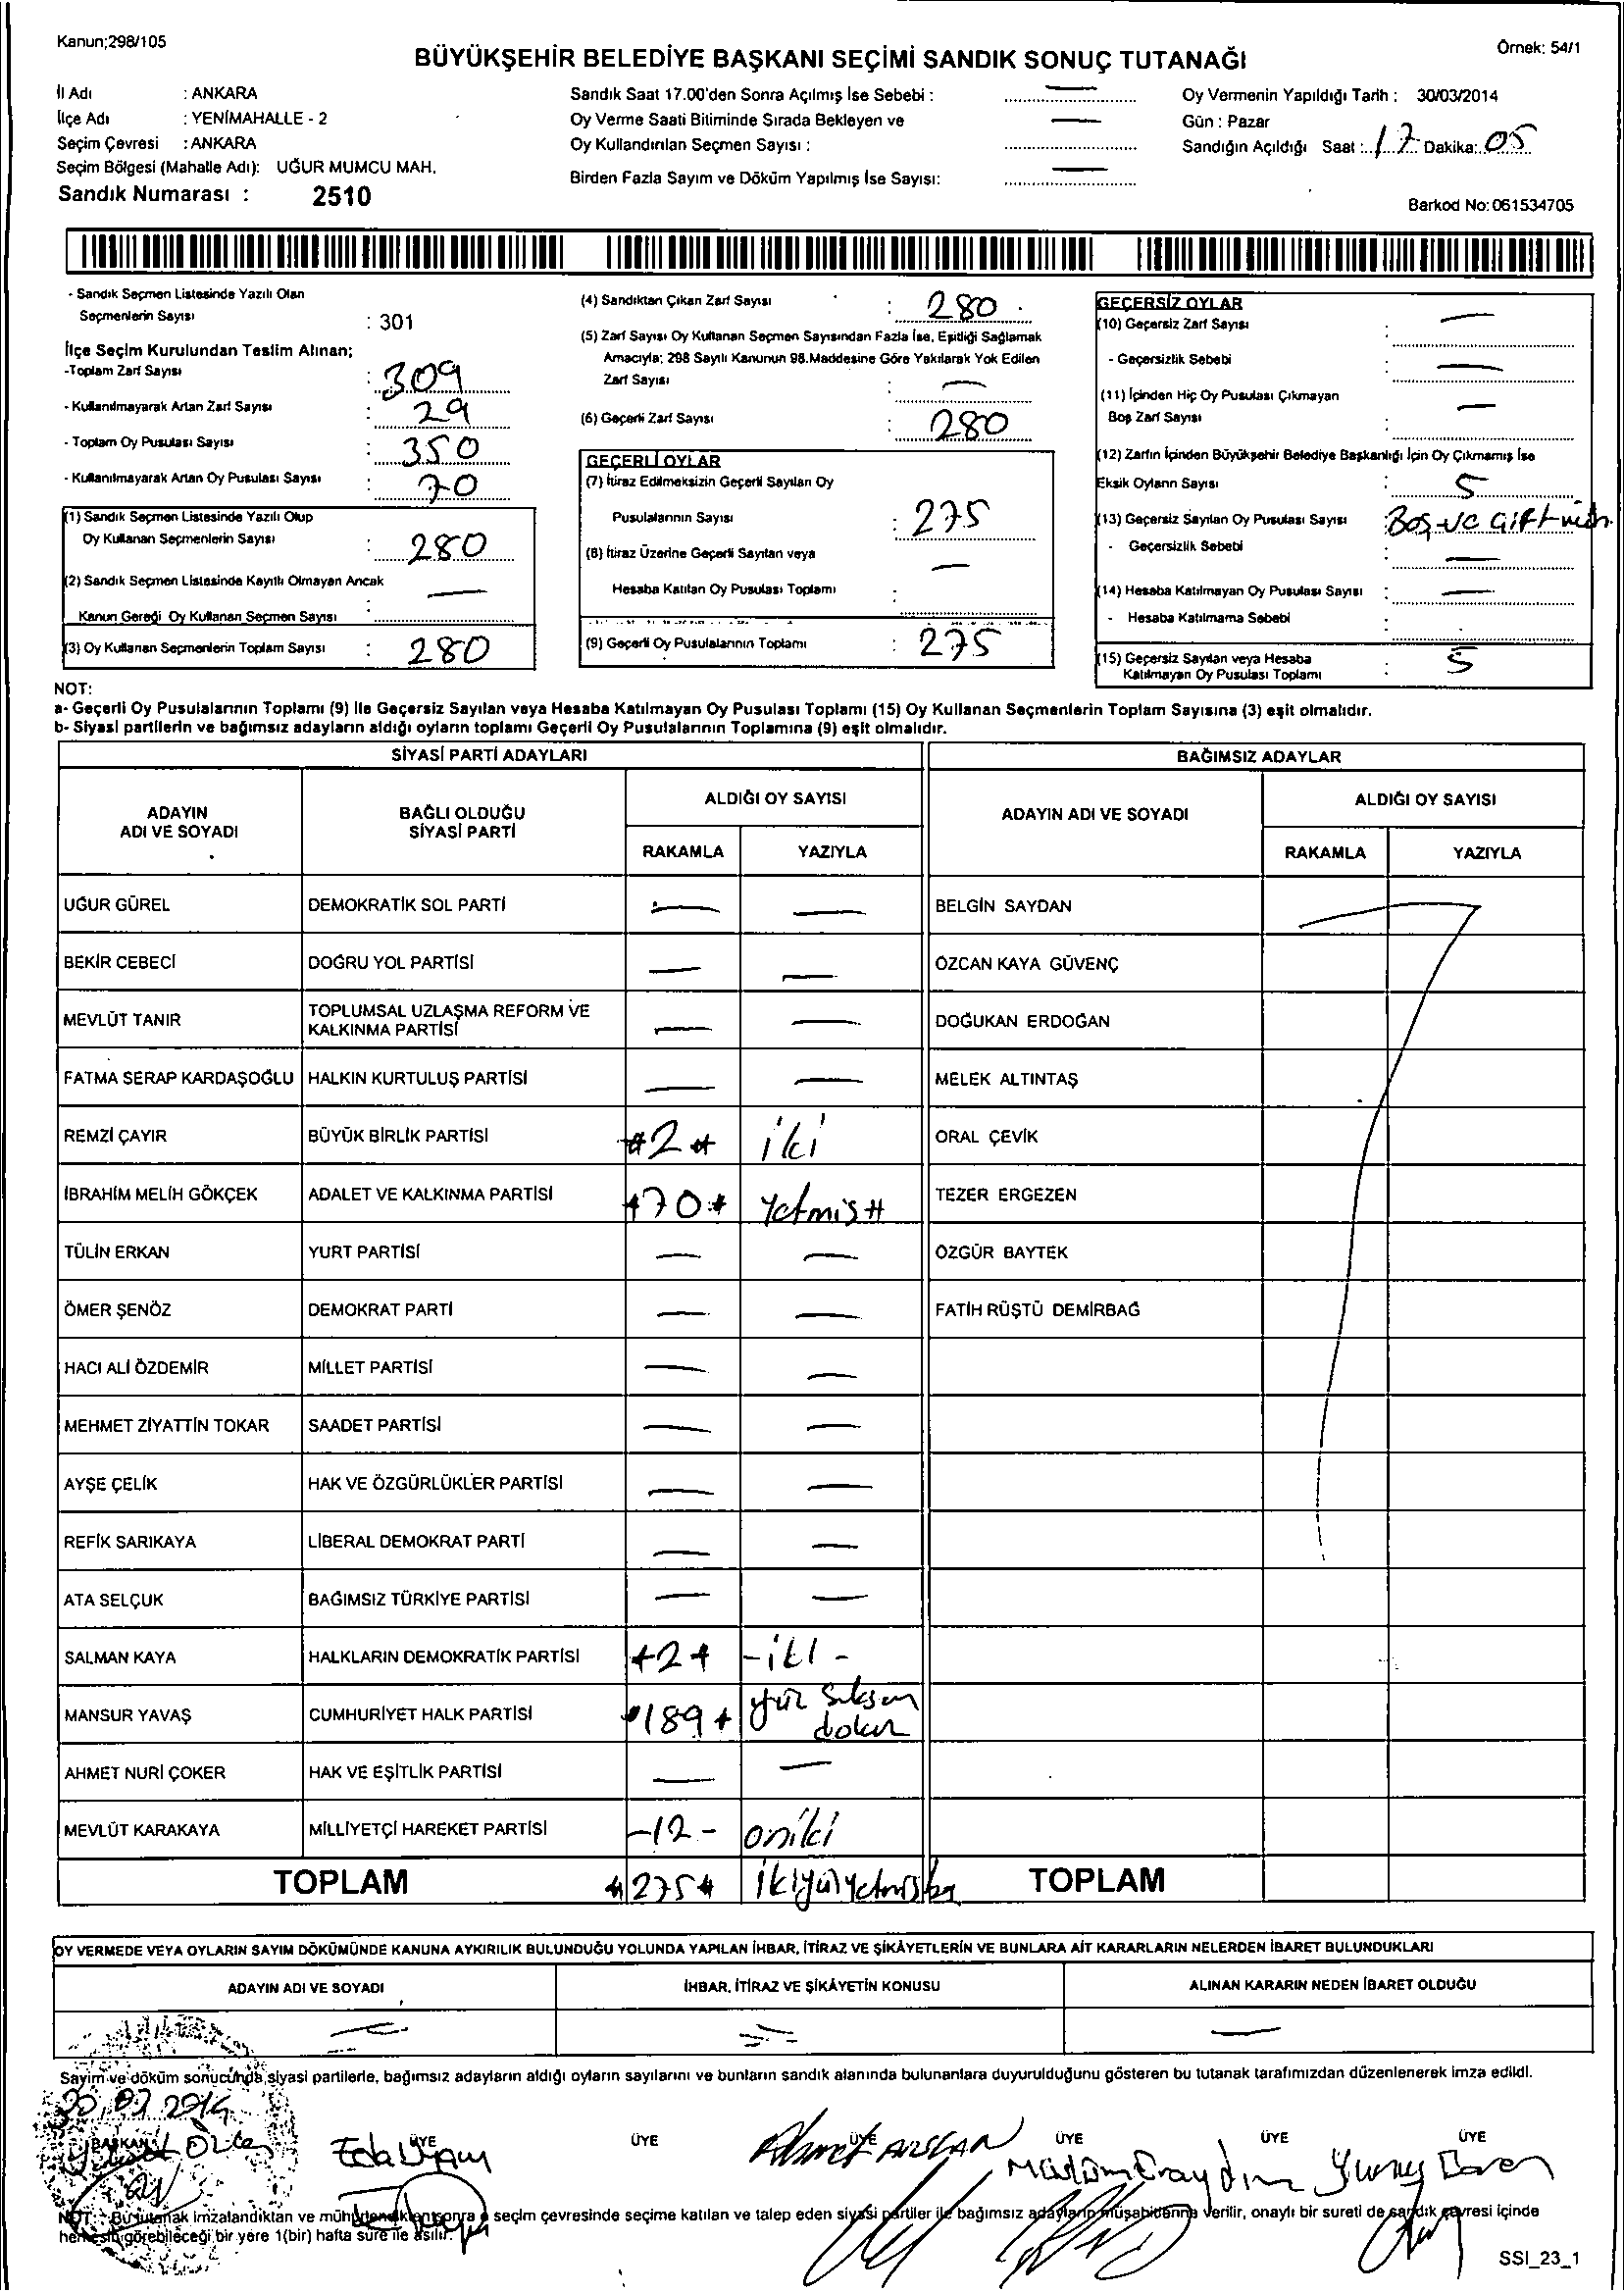 Kanun;298/105
Örnek: 54/1
BÜYÜKŞEHİR BELEDİYE BAŞKANI SEÇİMİ SANDIK SONUÇ TUTANAĞI
İl Adı : ANKARA
İlçe Adı : YENİMAHALLE - 2
Seçim Çevresi : ANKARA
Seçim Bölgesi (Mahalle Adı): UĞUR MUMCU MAH.
Sandık Numarası : 2510
Sandık Saat 17.00'den Sonra Açılmış İse Sebebi : —
Oy Verme Saati Bitiminde Sırada Bekleyen ve
Oy Kullandırılan Seçmen Sayısı : —
Birden Fazla Sayım ve Döküm Yapılmış İse Sayısı: —
Oy Vermenin Yapıldığı Tarih : 30/03/2014
Gün : Pazar
Sandığın Açıldığı Saat : 17 Dakika: 05
Barkod No: 061534705
- Sandık Seçmen Listesinde Yazılı Olan
Seçmenlerin Sayısı : 301
İlçe Seçim Kurulundan Teslim Alınan;
-Toplam Zarf Sayısı : 309
- Kullanılmayarak Artan Zarf Sayısı : 29
- Toplam Oy Pusulası Sayısı : 350
- Kullanılmayarak Artan Oy Pusulası Sayısı : 70
(1) Sandık Seçmen Listesinde Yazılı Olup
Oy Kullanan Seçmenlerin Sayısı : 280
(2) Sandık Seçmen Listesinde Kayıtlı Olmayan Ancak
Kanun Gereği Oy Kullanan Seçmen Sayısı : —
(3) Oy Kullanan Seçmenlerin Toplam Sayısı : 280
(4) Sandıktan Çıkan Zarf Sayısı : 280
(5) Zarf Sayısı Oy Kullanan Seçmen Sayısından Fazla İse, Eşitliği Sağlamak
Amacıyla; 298 Sayılı Kanunun 98.Maddesine Göre Yakılarak Yok Edilen
Zarf Sayısı : —
(6) Geçerli Zarf Sayısı : 280
GEÇERLİ OYLAR
(7) İtiraz Edilmeksizin Geçerli Sayılan Oy
Pusulalarının Sayısı : 275
(8) İtiraz Üzerine Geçerli Sayılan veya
Hesaba Katılan Oy Pusulası Toplamı : —
(9) Geçerli Oy Pusulalarının Toplamı : 275
GEÇERSİZ OYLAR
(10) Geçersiz Zarf Sayısı : —
- Geçersizlik Sebebi : —
(11) İçinden Hiç Oy Pusulası Çıkmayan
Boş Zarf Sayısı : —
(12) Zarfın İçinden Büyükşehir Belediye Başkanlığı İçin Oy Çıkmamış İse
Eksik Oyların Sayısı : 5
(13) Geçersiz Sayılan Oy Pusulası Sayısı : Boş ve çift
- Geçersizlik Sebebi : —
(14) Hesaba Katılmayan Oy Pusulası Sayısı : —
- Hesaba Katılmama Sebebi :
(15) Geçersiz Sayılan veya Hesaba
Katılmayan Oy Pusulası Toplamı : 5
NOT:
a- Geçerli Oy Pusulalarının Toplamı (9) ile Geçersiz Sayılan veya Hesaba Katılmayan Oy Pusulası Toplamı (15) Oy Kullanan Seçmenlerin Toplam Sayısına (3) eşit olmalıdır.
b- Siyasi partilerin ve bağımsız adayların aldığı oyların toplamı Geçerli Oy Pusulalarının Toplamına (9) eşit olmalıdır.
SİYASİ PARTİ ADAYLARI
BAĞIMSIZ ADAYLAR
ADAYIN ADI VE SOYADI
BAĞLI OLDUĞU SİYASİ PARTİ
ALDIĞI OY SAYISI
RAKAMLA YAZIYLA
ADAYIN ADI VE SOYADI
ALDIĞI OY SAYISI
RAKAMLA YAZIYLA
UĞUR GÜREL DEMOKRATİK SOL PARTİ — — BELGİN SAYDAN
BEKİR CEBECİ DOĞRU YOL PARTİSİ — — ÖZCAN KAYA GÜVENÇ
MEVLÜT TANIR TOPLUMSAL UZLAŞMA REFORM VE KALKINMA PARTİSİ — — DOĞUKAN ERDOĞAN
FATMA SERAP KARDAŞOĞLU HALKIN KURTULUŞ PARTİSİ — — MELEK ALTINTAŞ
REMZİ ÇAYIR BÜYÜK BİRLİK PARTİSİ #2# iki ORAL ÇEVİK
İBRAHİM MELİH GÖKÇEK ADALET VE KALKINMA PARTİSİ +70+ yetmiş# TEZER ERGEZEN
TÜLİN ERKAN YURT PARTİSİ — — ÖZGÜR BAYTEK
ÖMER ŞENÖZ DEMOKRAT PARTİ — — FATİH RÜŞTÜ DEMİRBAĞ
HACI ALİ ÖZDEMİR MİLLET PARTİSİ — —
MEHMET ZİYATTİN TOKAR SAADET PARTİSİ — —
AYŞE ÇELİK HAK VE ÖZGÜRLÜKLER PARTİSİ — —
REFİK SARIKAYA LİBERAL DEMOKRAT PARTİ — —
ATA SELÇUK BAĞIMSIZ TÜRKİYE PARTİSİ — —
SALMAN KAYA HALKLARIN DEMOKRATİK PARTİSİ +2+ -iki-
MANSUR YAVAŞ CUMHURİYET HALK PARTİSİ +189+ yüz seksen dokuz
AHMET NURİ ÇOKER HAK VE EŞİTLİK PARTİSİ — —
MEVLÜT KARAKAYA MİLLİYETÇİ HAREKET PARTİSİ -12- oniki
TOPLAM #275# ikiyüzyetmişbeş TOPLAM
OY VERMEDE VEYA OYLARIN SAYIM DÖKÜMÜNDE KANUNA AYKIRILIK BULUNDUĞU YOLUNDA YAPILAN İHBAR, İTİRAZ VE ŞİKÂYETLERİN VE BUNLARA AİT KARARLARIN NELERDEN İBARET BULUNDUKLARI
ADAYIN ADI VE SOYADI İHBAR, İTİRAZ VE ŞİKÂYETİN KONUSU ALINAN KARARIN NEDEN İBARET OLDUĞU
Sayım ve döküm sonucunda, siyasi partilerle, bağımsız adayların aldığı oyların sayılarını ve bunların sandık alanında bulunanlara duyurulduğunu gösteren bu tutanak tarafımızdan düzenlenerek imza edildi.
30.03.2014
BAŞKAN ÜYE ÜYE ÜYE ÜYE ÜYE ÜYE
Ahmet ARSLAN
NOT : Bu tutanak imzalandıktan ve mühürlendikten sonra o seçim çevresinde seçime katılan ve talep eden siyasi partiler ile bağımsız adayların müşahitlerine verilir, onaylı bir sureti de sandık çevresi içinde
herkesin görebileceği bir yere 1(bir) hafta süre ile asılır.
SSI_23_1